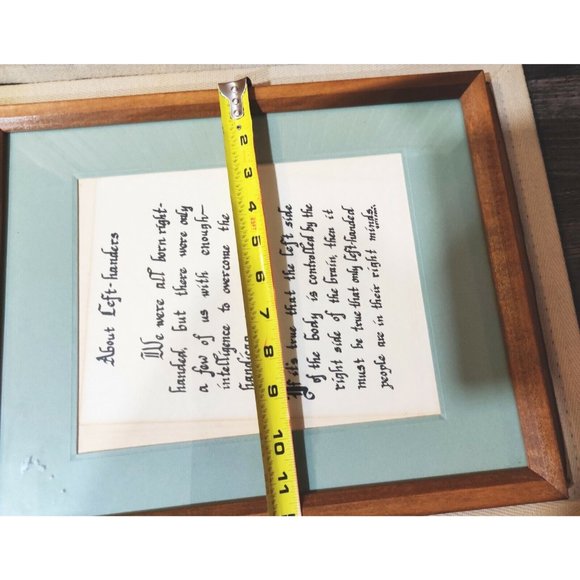 About Left-handers
We were all born right-
handed, but there were only
a few of us with enough
intelligence to overcome the
handicap
If it's true that the left side
of the body is controlled by the
right side of the brain, then it
must be true that only left-handed
people are in their right minds.
2
3
4
5
6
7
8
9
10
11